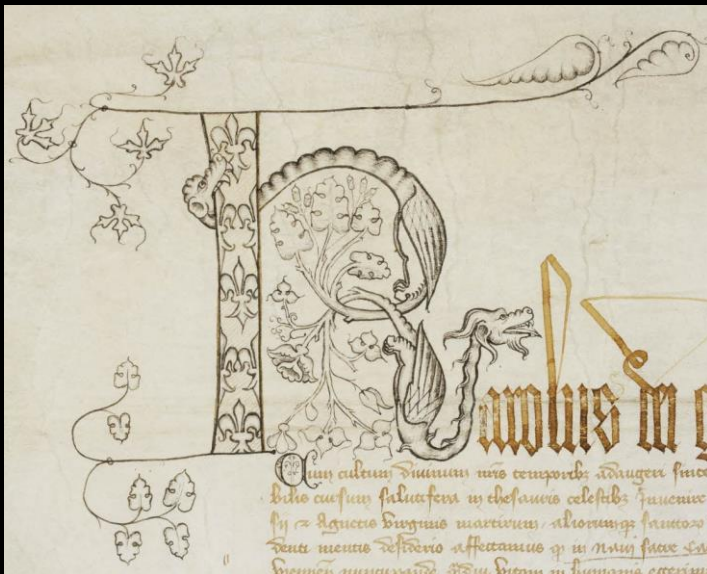 Karolus dei g
Cum cultum divinum nris temporibz adaugeri since
bilis cursum salutifera in thesauris celestibz Invenire
sii et Agnetis virginis martirum aliorumqz sanctoro
denti mentis desiderio affectamus qz in Navi sacre Ca
viennen nuncupande